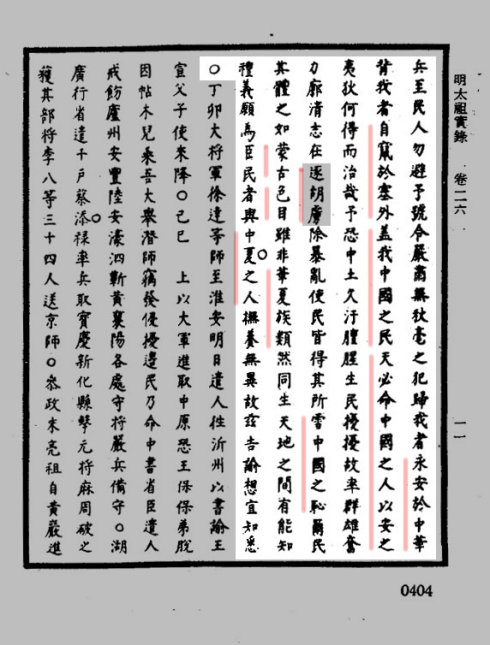 明太祖實錄 卷二六 一一
兵至民人勿避予號令嚴肅無秋毫之犯歸我者永安於中華
背我者自竄於塞外蓋我中國之民天必命中國之人以安之
夷狄何得而治哉予恐中土久汙膻腥生民擾擾故率群雄奮
力廓清志在逐胡虜除暴亂使民皆得其所雪中國之恥爾民
其體之如蒙古色目雖非華夏族類然同生天地之間有能知
禮義願為臣民者與中夏之人撫養無異故茲告諭想宜知悉
○丁卯大將軍徐達等師至淮安明日遣人往沂州以書諭王
宣父子使來降○己巳 上以大軍進取中原恐王保保弟脫
因帖木兒乘吾大舉潛師竊發侵擾邊民乃命中書省臣遣人
戒飭廬州安豐陸安濠泗蘄黃襄陽各處守將嚴兵備守○湖
廣行省遣千戶蔡添祿率兵取寶慶新化縣擊元將麻周破之
獲其部將李八等三十四人送京師○參政朱亮祖自黃巖進
0404